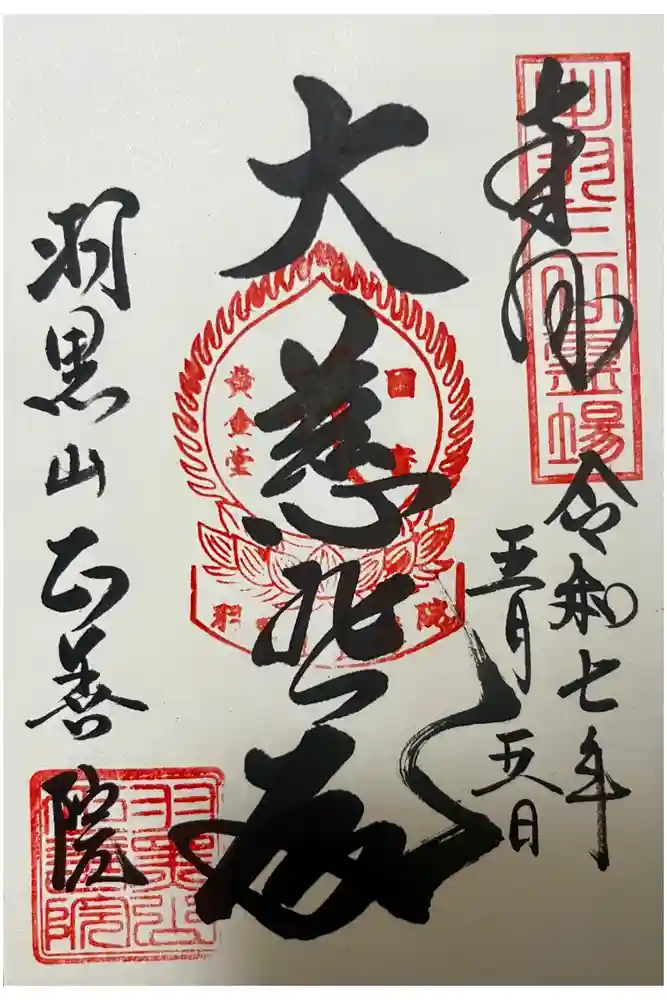 奉拝
出羽三山霊場
令和七年
五月五日
大慈悲殿
黄金堂
羽黒山正善院
羽黒山正善院